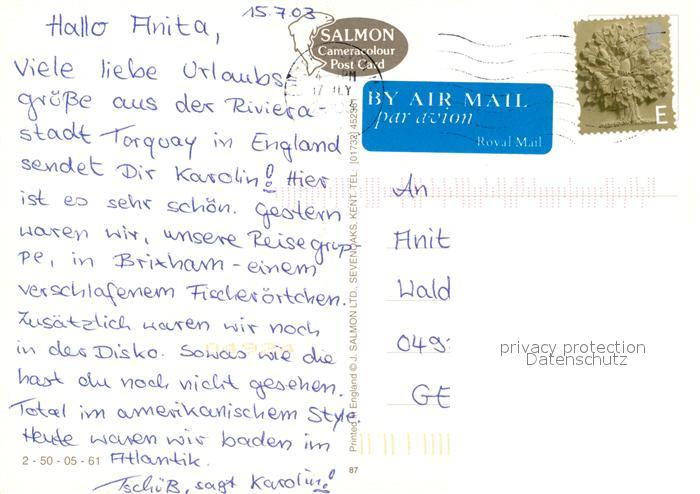 15.7.03
Hallo Anita,
Viele liebe Urlaubs-
grüße aus der Riviera-
stadt Torquay in England
sendet Dir Karolin! Hier
ist es sehr schön. Gestern
waren wir, unsere Reisegrup-
pe, in Brixham - einem
verschlafenem Fischerörtchen.
Zusätzlich waren wir noch
in der Disko. Sowas wie die
hast du noch nicht gesehen.
Total im amerikanischem Style.
Heute waren wir baden im
Atlantik.
Tschüß, sagt Karolin!
2 - 50 - 05 - 61
SALMON
Cameracolour
Post Card
Printed in England © J. SALMON LTD., SEVENOAKS, KENT. TEL: (01732) 452381
87
BY AIR MAIL
par avion
Royal Mail
E
An
Anit
Wald
049
GE
privacy protection
Datenschutz